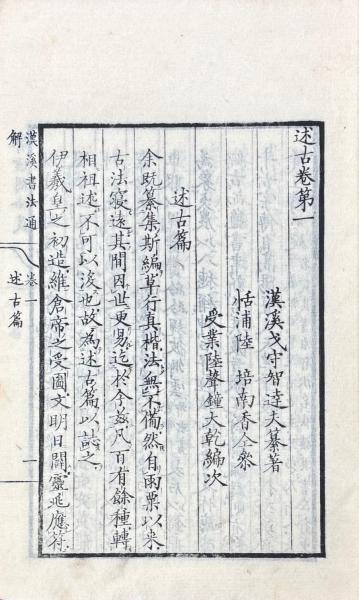 述古卷第一
漢溪戈守智達夫纂著
恬浦陸　培南香仝叅
受業陸聲鐘大乾編次
述古篇
余既纂集斯編草行真楷法無不僃然自雨粟以來
古法寖遠其間因世更易迄於今茲凡百有餘種轉
相祖述不可以没也故為述古篇以誌之
伊羲皇之初造維倉帝之受圖文明日闢靈兆應符
漢溪書法通解　卷一　述古篇　一